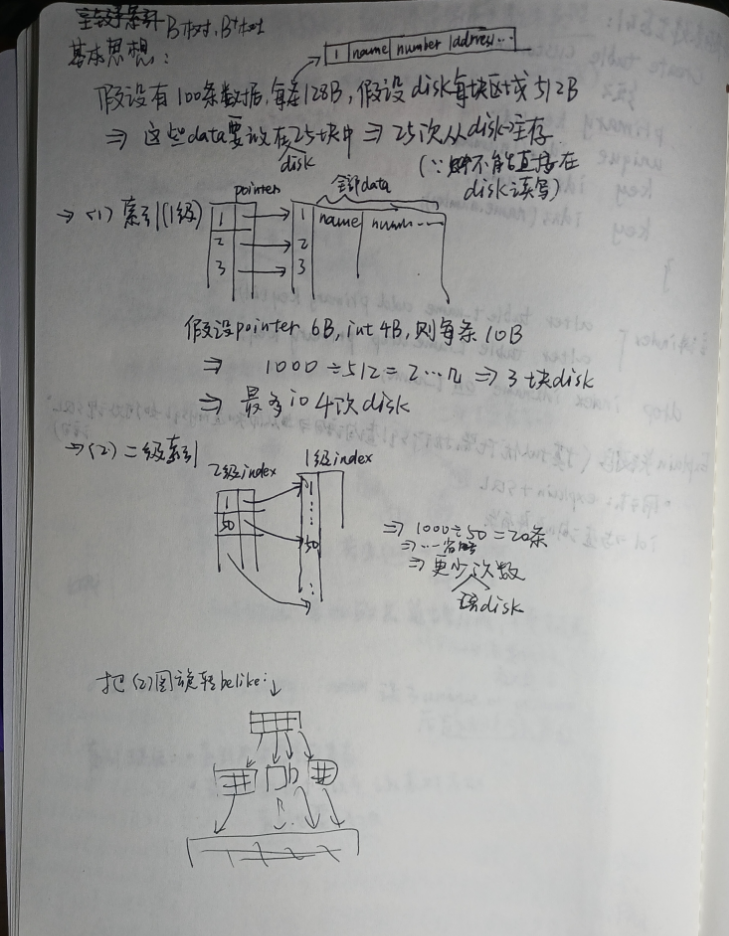 B树, B+树
基本思想:
1 name number address...
假设有100条数据,每条128B,假设disk每块区域512B
⇒ 这些data要放在25块中 ⇒ 25次从disk→主存
disk
(∵不能直接在
disk读写)
pointer 全部data
→ (1) 索引(1级) 1 1 name num...
2 2
3 3
假设pointer 6B, int 4B, 则每条10B
⇒ 1000÷512=2...n ⇒ 3块disk
⇒ 最多io 4次disk
→ (2) 二级索引 2级index 1级index
1 1
50 50
⇒ 1000÷50=20条
⇒ ...省略
⇒ 更少次数
读disk
把(2)图旋转belike:↓